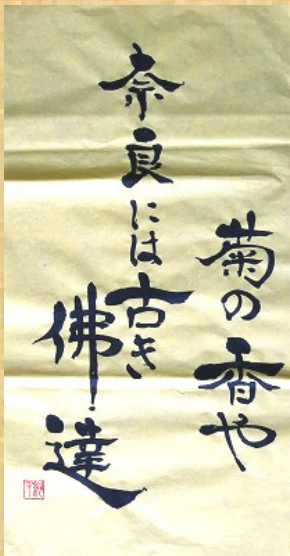 菊の香や
奈良には古き
佛達